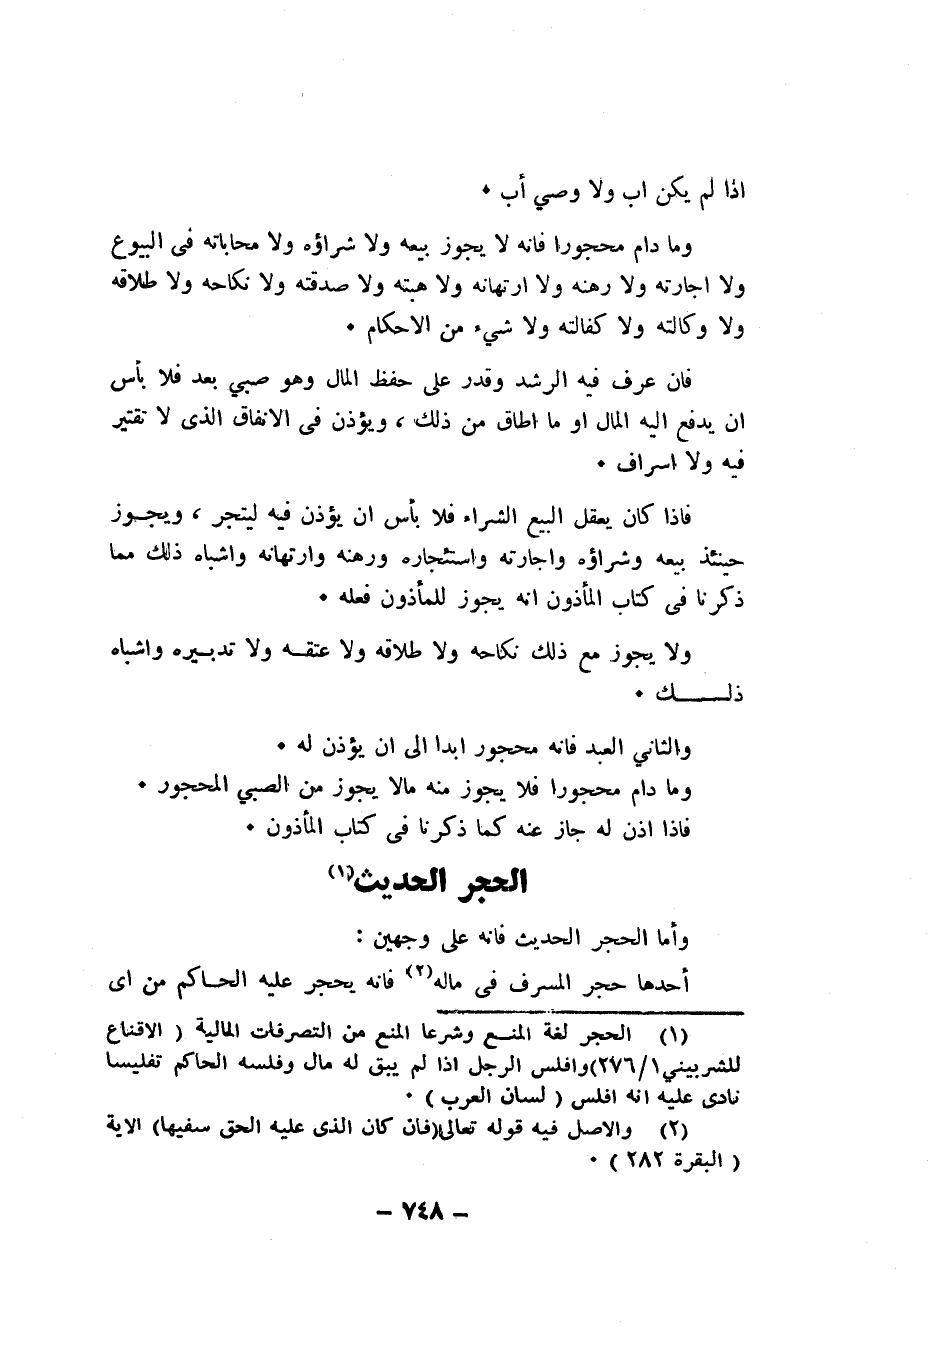 اذا لم يكن اب ولا وصي أب ٠
وما دام محجورا فانه لا يجوز بيعه ولا شراؤه ولا محاباته فى البيوع
ولا اجارته ولا رهنه ولا ارتهانه ولا هبته ولا صدقته ولا نكاحه ولا طلاقه
ولا وكالته ولا كفالته ولا شيء من الاحكام ٠
فان عرف فيه الرشد وقدر على حفظ المال وهو صبي بعد فلا بأس
ان يدفع اليه المال او ما اطاق من ذلك ، ويؤذن فى الانفاق الذى لا تقتير
فيه ولا اسراف ٠
فاذا كان يعقل البيع الشراء فلا بأس ان يؤذن فيه ليتجر ، ويجوز
حينئذ بيعه وشراؤه واجارته واستئجاره ورهنه وارتهانه واشباه ذلك مما
ذكرنا فى كتاب المأذون انه يجوز للمأذون فعله ٠
ولا يجوز مع ذلك نكاحه ولا طلاقه ولا عتقه ولا تدبيره واشباه
ذلك ٠
والثاني العبد فانه محجور ابدا الى ان يؤذن له ٠
وما دام محجورا فلا يجوز منه مالا يجوز من الصبي المحجور ٠
فاذا اذن له جاز عنه كما ذكرنا فى كتاب المأذون ٠
الحجر الحديث(١)
وأما الحجر الحديث فانه على وجهين :
أحدها حجر المسرف فى ماله(٢) فانه يحجر عليه الحاكم من اى
(١) الحجر لغة المنع وشرعا المنع من التصرفات المالية ( الاقناع
للشربيني٢٧٦/١)وافلس الرجل اذا لم يبق له مال وفلسه الحاكم تفليسا
نادى عليه انه افلس ( لسان العرب ) ٠
(٢) والاصل فيه قوله تعالى(فان كان الذى عليه الحق سفيها) الاية
( البقرة ٢٨٢ ) ٠
– ٧٤٨ –